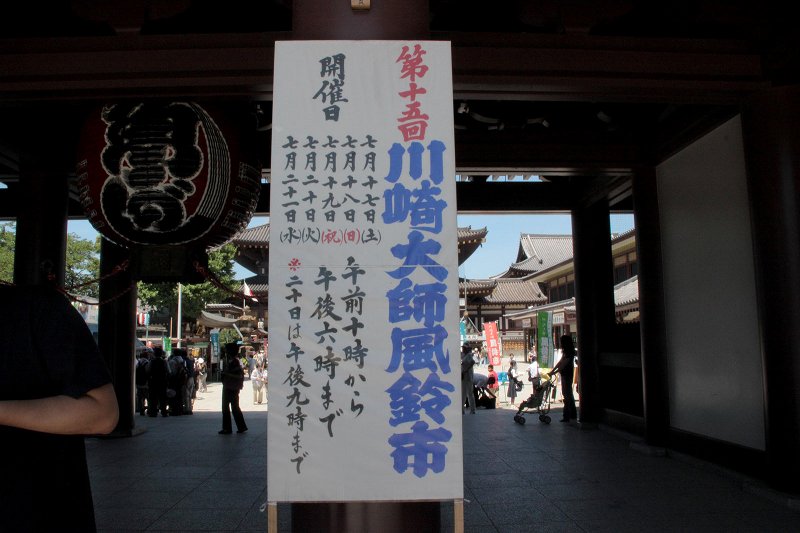 第十五回
川崎大師風鈴市
開催日
七月十七日(土)
七月十八日(日)
七月十九日(祝)
七月二十日(火)
七月二十一日(水)
午前十時から
午後六時まで
※二十日は午後九時まで